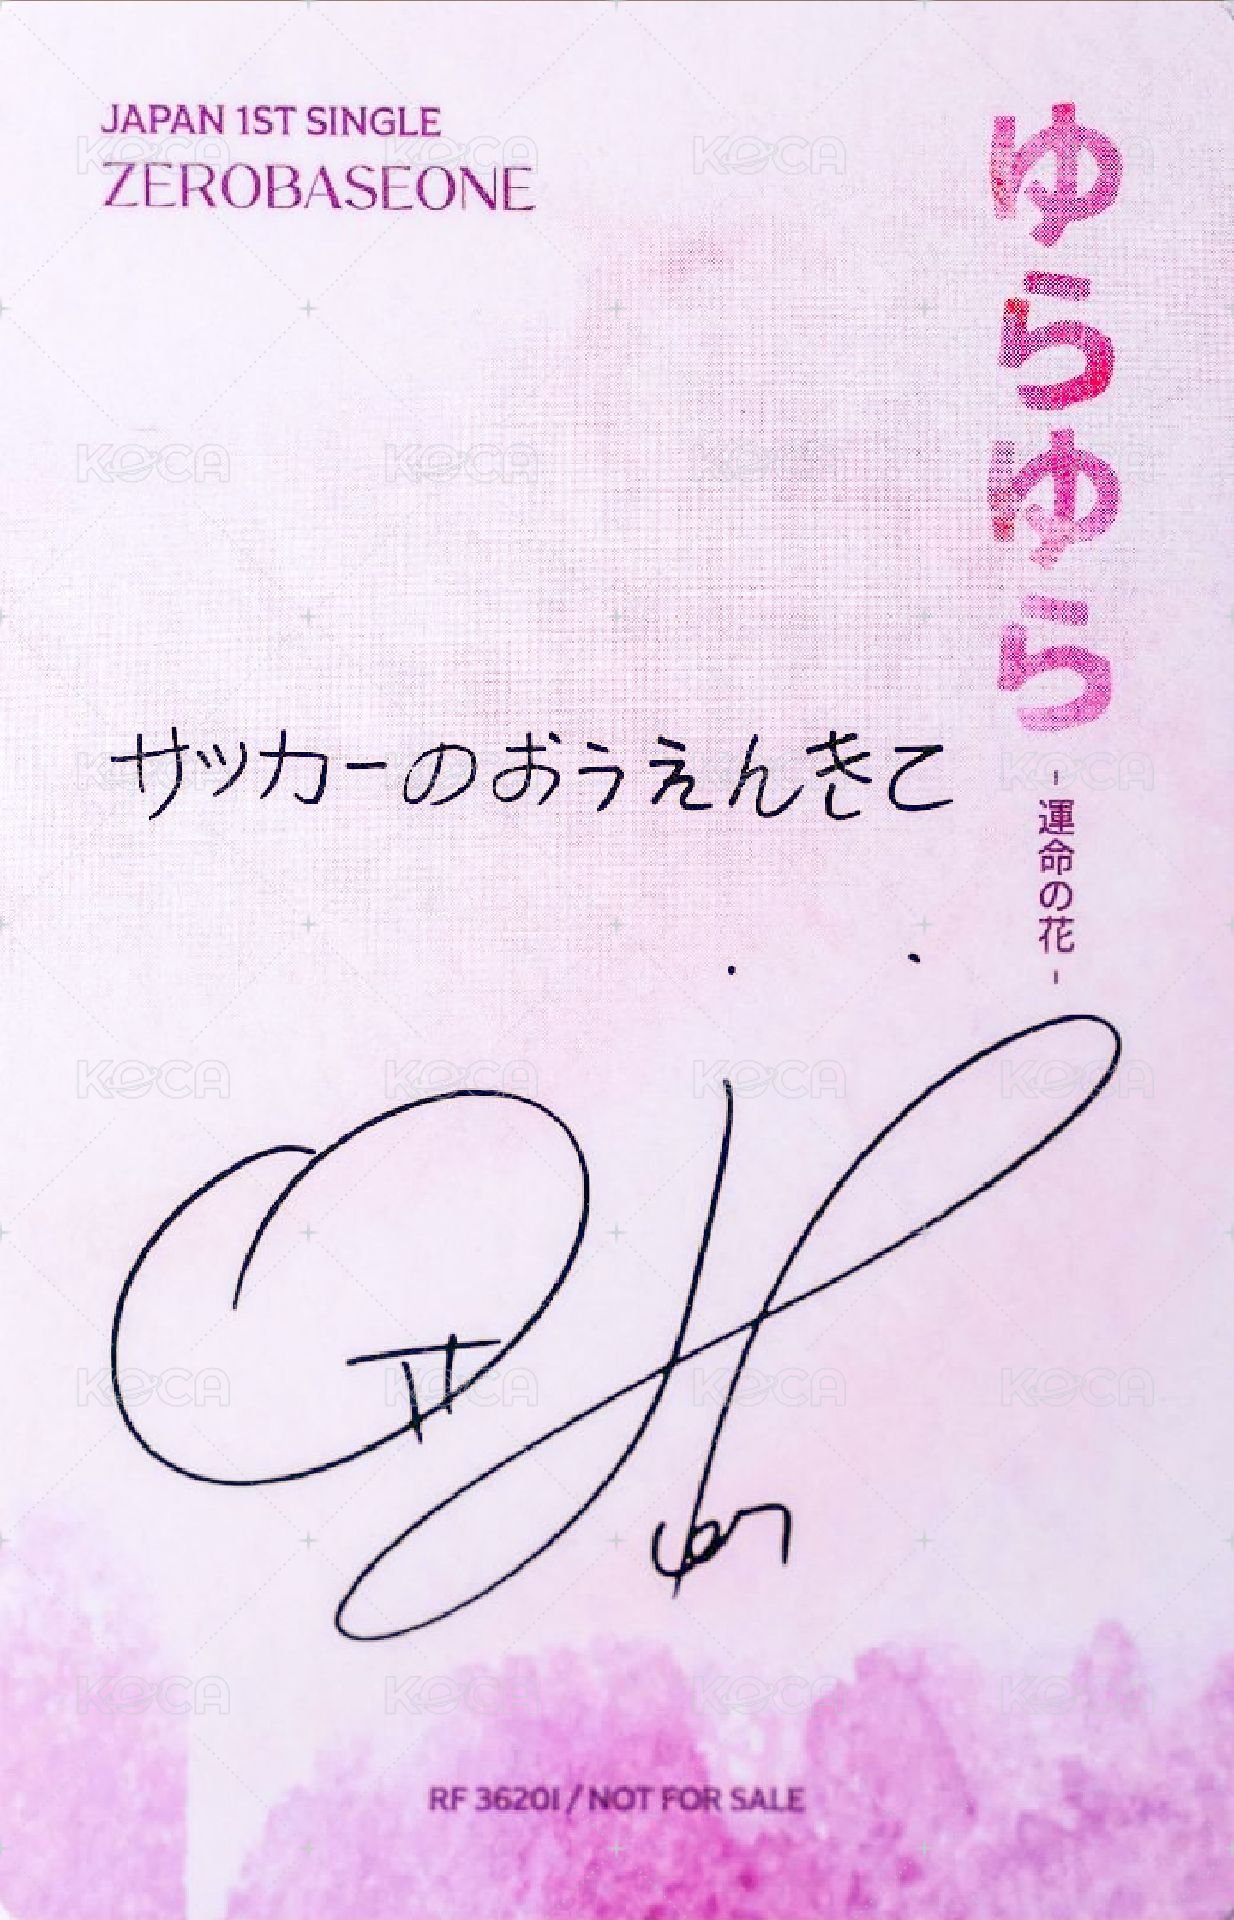 JAPAN 1ST SINGLE
ZEROBASEONE
ゆらゆら
-運命の花-
サッカーのおうえんきて
RF 36201 / NOT FOR SALE
KOCA